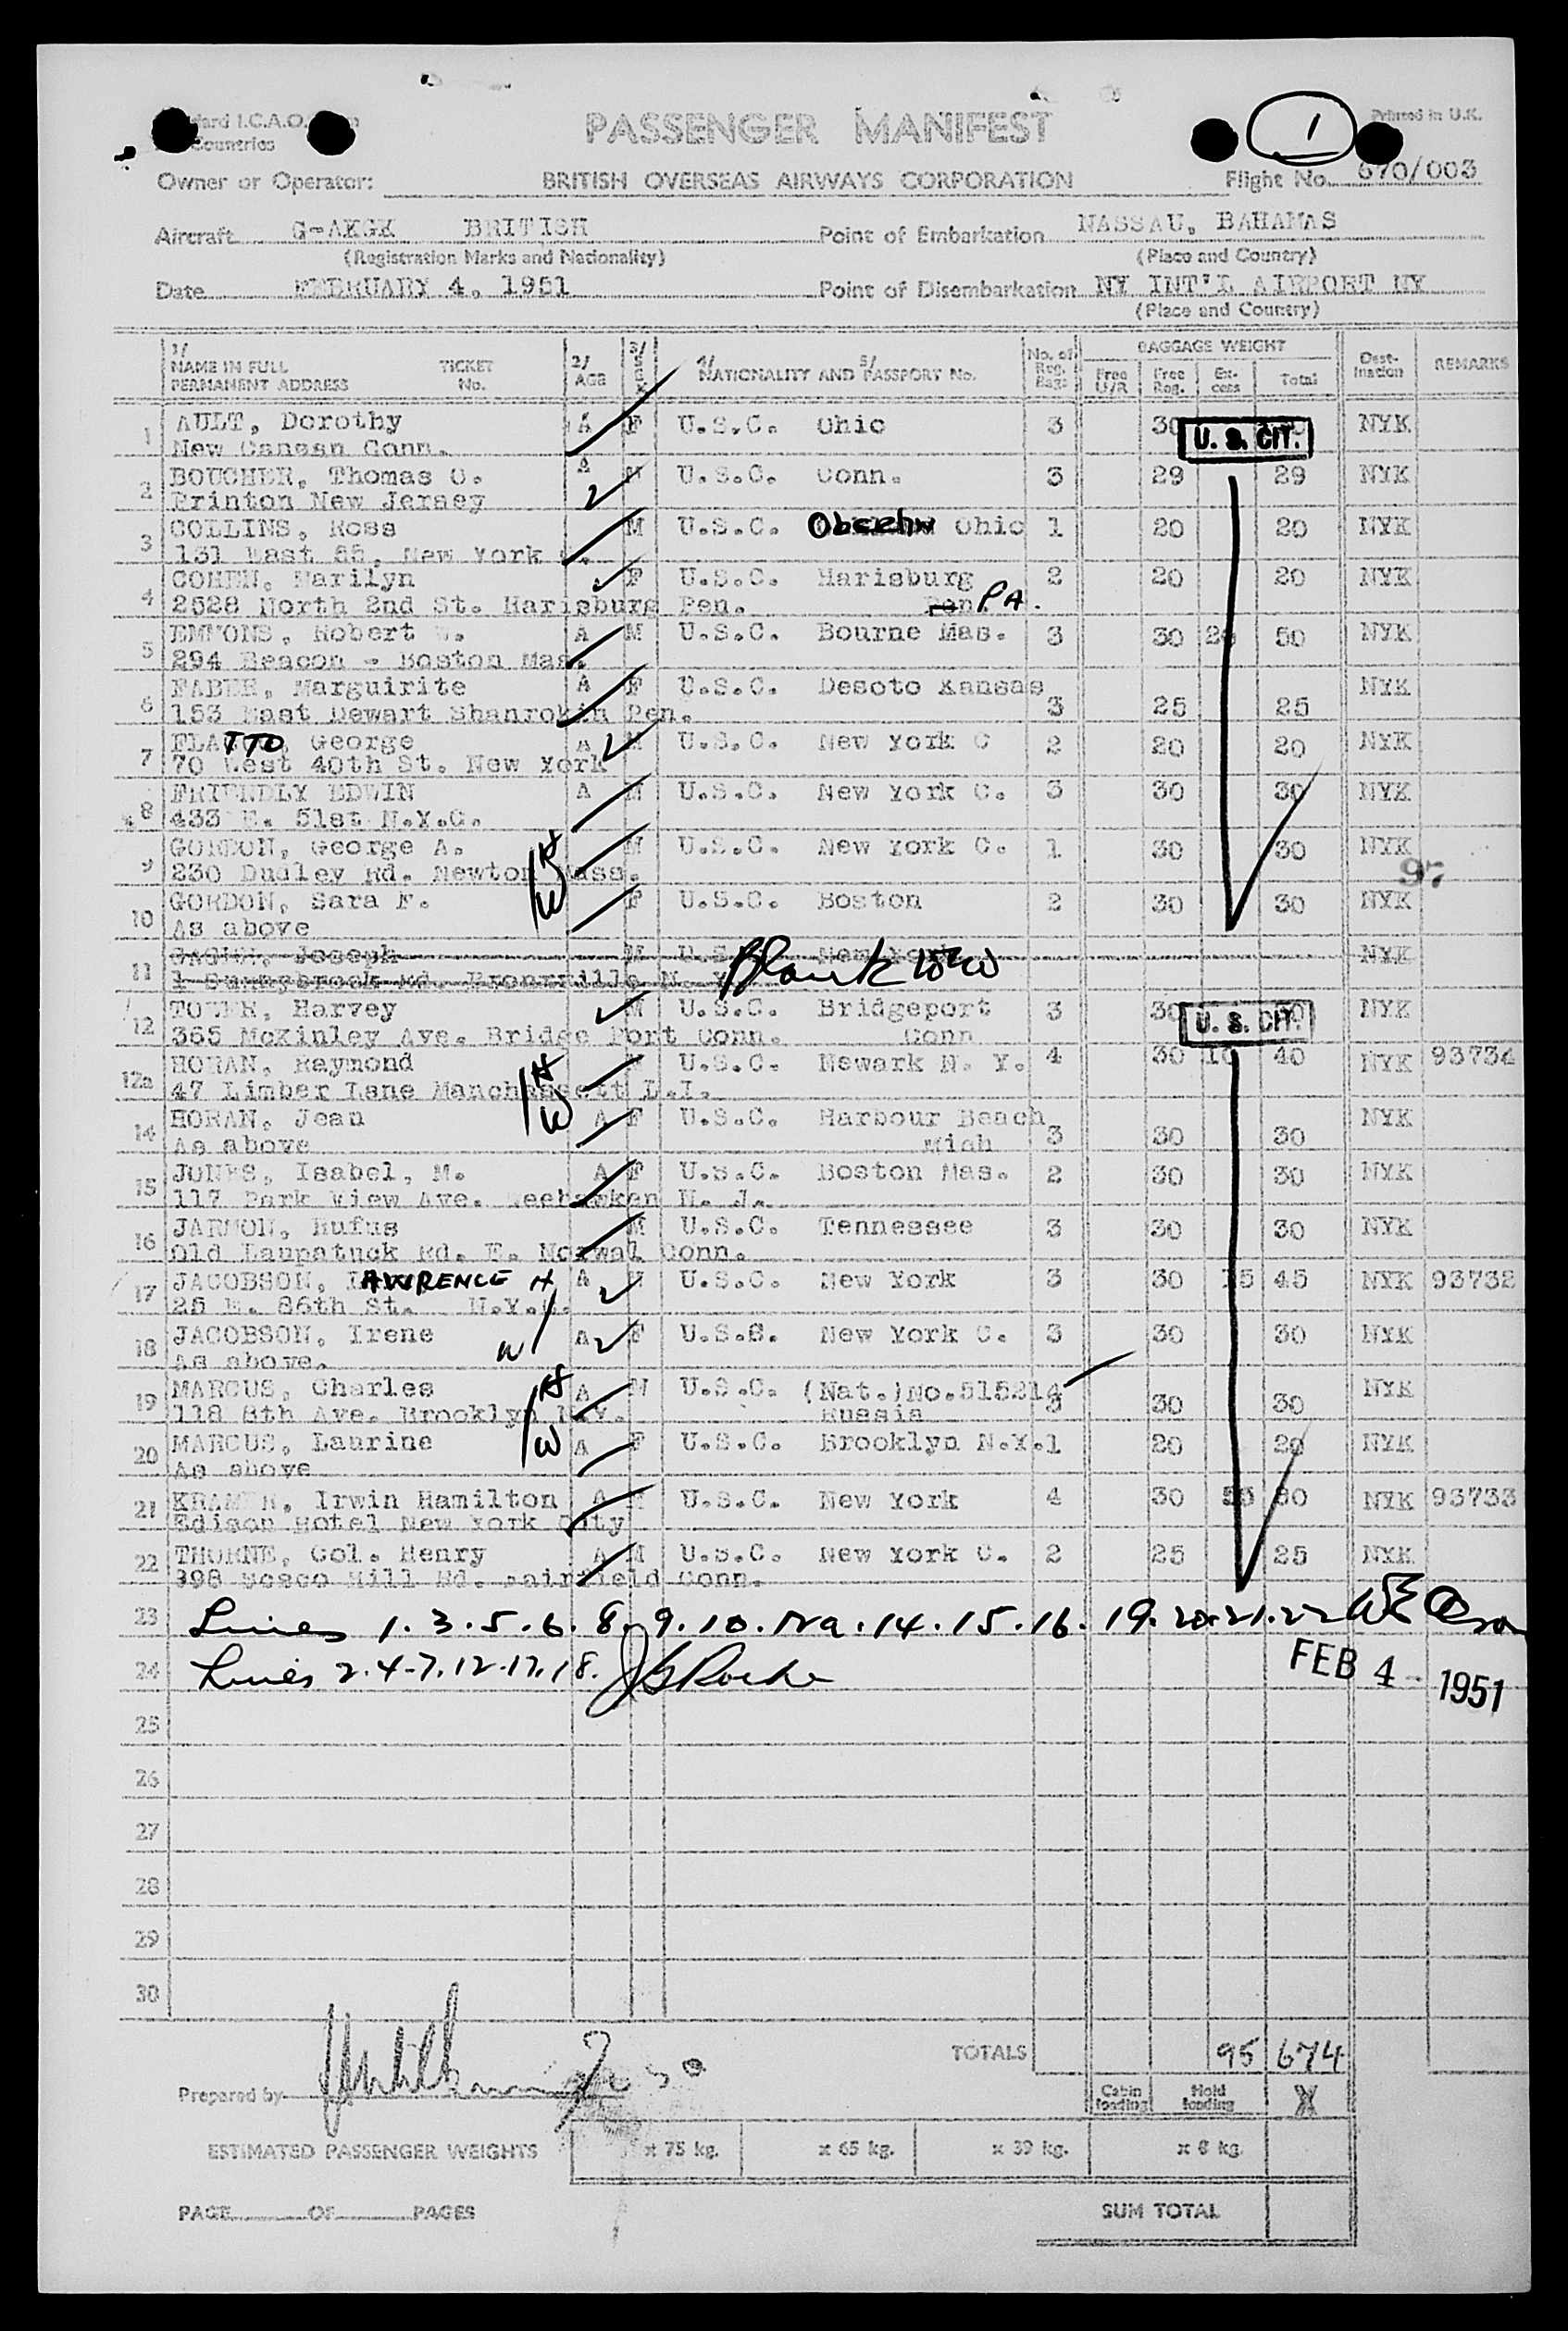 1
Printed in U.K.
Countries
PASSENGER MANIFEST
Owner or Operator: BRITISH OVERSEAS AIRWAYS CORPORATION Flight No. 670/003
Aircraft G-AKGK BRITISH Point of Embarkation NASSAU, BAHAMAS
(Registration Marks and Nationality) (Place and Country)
Date FEBRUARY 4, 1951 Point of Disembarkation NY INT'L AIRPORT NY
(Place and Country)
1/ 2/ 3/ 4/ 5/ No. of BAGGAGE WEIGHT
NAME IN FULL TICKET AGE SEX NATIONALITY AND PASSPORT No. Reg. Free Free Ex- Total Dest- REMARKS
PERMANENT ADDRESS No. Bags U/R Reg. cess ination
1 AULT, Dorothy A F U.S.C. Ohio 3 30 U. S. CIT. NYK
New Canaan Conn.
2 BOUCHER, Thomas C. A M U.S.C. Conn. 3 29 29 NYK
Printon New Jersey
3 COLLINS, Ross M U.S.C. Oberlin Ohio 1 20 20 NYK
131 East 66, New York
4 COHEN, Marilyn F U.S.C. Harisburg 2 20 20 NYK
2528 North 2nd St. Harisburg Pen. Pen PA.
5 EMMONS, Robert W. A M U.S.C. Bourne Mas. 3 30 20 50 NYK
294 Beacon - Boston Mas.
6 FABER, Marguirite A F U.S.C. Desoto Kansas NYK
153 East Dewart Shanrokin Pen. 3 25 25
7 FLATTO, George A M U.S.C. New York C 2 20 20 NYK
70 West 40th St. New York
8 FRIENDLY EDWIN A M U.S.C. New York C. 3 30 30 NYK
433 E. 51st N.Y.C.
9 GORDON, George A. H M U.S.C. New York C. 1 30 30 NYK
230 Dudley Rd. Newton Mass. 97
10 GORDON, Sara F. W F U.S.C. Boston 2 30 30 NYK
As above
11 Joseph M U.S. New York NYK
1 Sunnybrook Rd. Bronxville N. Y. Blank
12 TOWER, Harvey M U.S.C. Bridgeport 3 30 U. S. CIT. NYK
365 McKinley Ave. Bridge Port Conn. Conn
12a HORAN, Raymond H U.S.C. Newark N. Y. 4 30 10 40 NYK 93734
47 Limber Lane Manchassett L.I.
14 HORAN, Jean W A F U.S.C. Harbour Beach NYK
As above Mich 3 30 30
15 JONES, Isabel, M. A F U.S.C. Boston Mas. 2 30 30 NYK
117 Park View Ave. Weehawken N. J.
16 JARMON, Rufus M U.S.C. Tennessee 3 30 30 NYK
Old Laupatuck Rd. E. Norwal Conn.
17 JACOBSON, LAWRENCE H A M U.S.C. New York 3 30 15 45 NYK 93732
25 E. 86th St. N.Y.C.
18 JACOBSON, Irene W A F U.S.S. New York C. 3 30 30 NYK
As above.
19 MARCUS, Charles H A M U.S.C. (Nat.)No.515214 NYK
118 8th Ave. Brooklyn N.Y. Russia 3 30 30
20 MARCUS, Laurine W A F U.S.C. Brooklyn N.Y. 1 20 20 NYK
As above
21 KRAMER, Irwin Hamilton A M U.S.C. New York 4 30 80 NYK 93733
Edison Hotel New York City
22 THORNE, Col. Henry A M U.S.C. New York C. 2 25 25 NYK
398 Hill Rd. Fairfield Conn.
23 Lines 1. 3. 5. 6. 8. 9. 10. 12a. 14. 15. 16. 19. 20. 21. 22
24 Lines 2. 4. 7. 12. 17. 18. FEB 4 - 1951
25
26
27
28
29
30
TOTALS 95 674
Prepared by Cabin loading Hold loading X
ESTIMATED PASSENGER WEIGHTS x 75 kg. x 65 kg. x 39 kg. x 8 kg.
PAGE OF PAGES SUM TOTAL